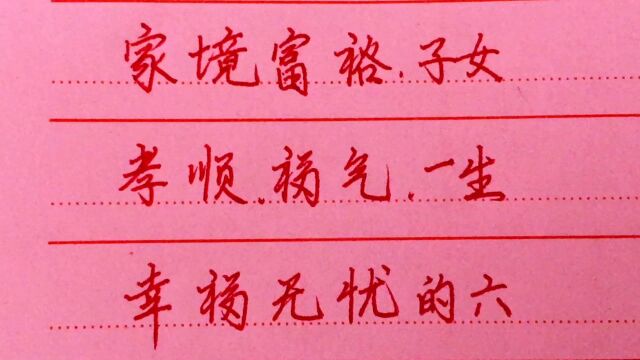 家境富裕.子女
孝顺.福气.一生
幸福无忧的六